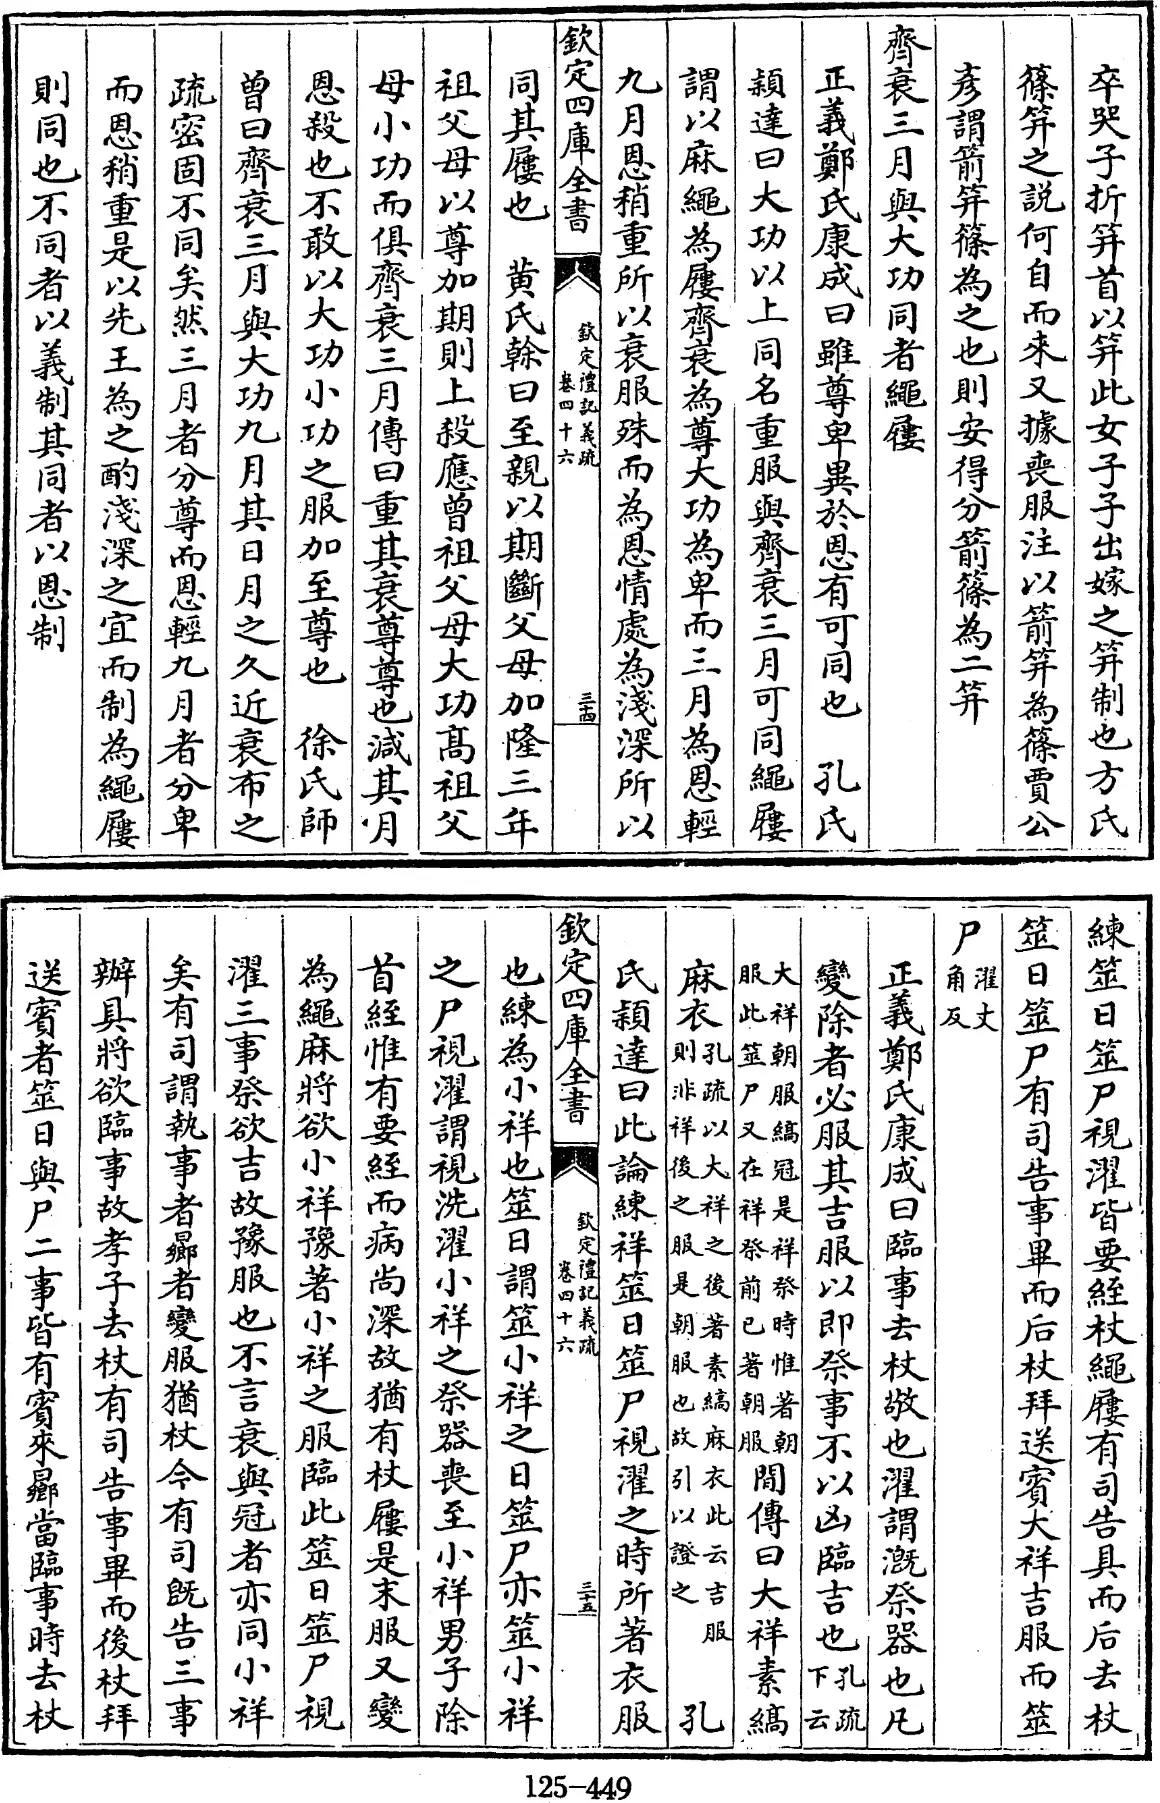 卒哭子折笄首以笄此女子子出嫁之笄制也方氏
篠笄之説何自而来又據喪服注以箭笄為篠賈公
彦謂箭笄篠為之也則安得分箭篠為二笄
齊衰三月與大功同者繩屨
正義鄭氏康成曰雖尊卑異於恩有可同也　孔氏
穎達曰大功以上同名重服與齊衰三月可同繩屨
謂以麻繩為屨齊衰為尊大功為卑而三月為恩輕
九月恩稍重所以衰服殊而為恩情處為淺深所以
欽定四庫全書
欽定禮記義疏
卷四十六
三四
同其屨也　黄氏榦曰至親以期斷父母加隆三年
祖父母以尊加期則上殺應曾祖父母大功髙祖父
母小功而俱齊衰三月傳曰重其衰尊尊也減其月
恩殺也不敢以大功小功之服加至尊也　徐氏師
曾曰齊衰三月與大功九月其日月之久近衰布之
疏密固不同矣然三月者分尊而恩輕九月者分卑
而恩稍重是以先王為之酌淺深之宜而制為繩屨
則同也不同者以義制其同者以恩制
練筮日筮尸視濯皆要絰杖繩屨有司告具而后去杖
筮日筮尸有司告事畢而后杖拜送賓大祥吉服而筮
尸濯丈角反
正義鄭氏康成曰臨事去杖敬也濯謂溉祭器也凡
變除者必服其吉服以即祭事不以凶臨吉也孔疏下云
大祥朝服縞冠是祥祭時惟著朝服此筮尸又在祥祭前已著朝服間傳曰大祥素縞
麻衣孔疏以大祥之後著素縞麻衣此云吉服則非祥後之服是朝服也故引以證之　孔
氏穎達曰此論練祥筮日筮尸視濯之時所著衣服
欽定四庫全書
欽定禮記義疏
卷四十六
三五
也練為小祥也筮日謂筮小祥之日筮尸亦筮小祥
之尸視濯謂視洗濯小祥之祭器喪至小祥男子除
首絰惟有要絰而病尚深故猶有杖屨是末服又變
為繩麻將欲小祥豫著小祥之服臨此筮日筮尸視
濯三事祭欲吉故豫服也不言衰與冠者亦同小祥
矣有司謂執事者曏者變服猶杖今有司既告三事
辦具將欲臨事故孝子去杖有司告事畢而後杖拜
送賓者筮日與尸二事皆有賓來曏當臨事時去杖
125-449